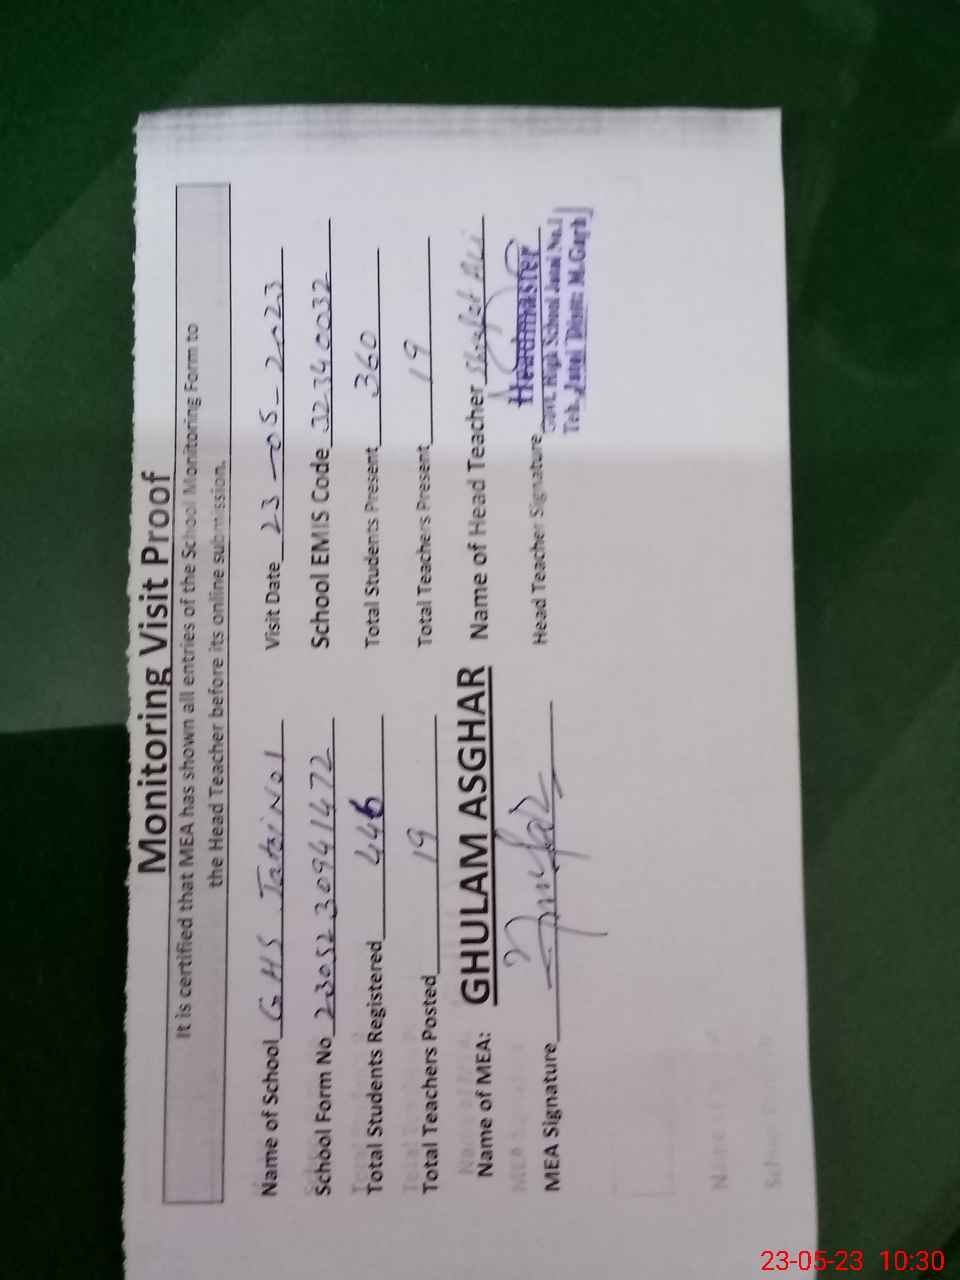 Monitoring Visit Proof
It is certified that MEA has shown all entries of the School Monitoring Form to
the Head Teacher before its online submission.
Name of School G HS Jatoi No 1 Visit Date 23-05-2023
School Form No 2305230941472 School EMIS Code 32340032
Total Students Registered 446 Total Students Present 360
Total Teachers Posted 19 Total Teachers Present 19
Name of MEA: GHULAM ASGHAR Name of Head Teacher Ali
MEA Signature Head Teacher Signature
Headmaster
Govt. High School Jatoi No.1
Teh. Jatoi Distt: M.Garh
23-05-23 10:30